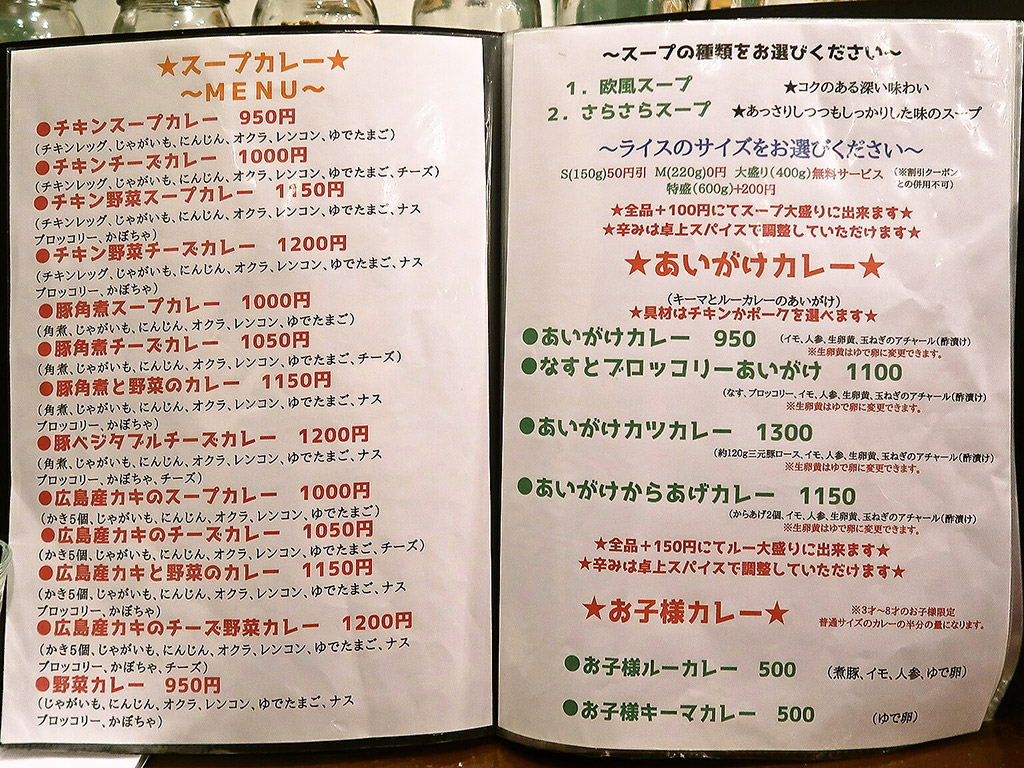 ★スープカレー★
～MENU～
●チキンスープカレー 950円
(チキンレッグ、じゃがいも、にんじん、オクラ、レンコン、ゆでたまご)
●チキンチーズカレー 1000円
(チキンレッグ、じゃがいも、にんじん、オクラ、レンコン、ゆでたまご、チーズ)
●チキン野菜スープカレー 1150円
(チキンレッグ、じゃがいも、にんじん、オクラ、レンコン、ゆでたまご、ナス
ブロッコリー、かぼちゃ)
●チキン野菜チーズカレー 1200円
(チキンレッグ、じゃがいも、にんじん、オクラ、レンコン、ゆでたまご、ナス
ブロッコリー、かぼちゃ)
●豚角煮スープカレー 1000円
(角煮、じゃがいも、にんじん、オクラ、レンコン、ゆでたまご)
●豚角煮チーズカレー 1050円
(角煮、じゃがいも、にんじん、オクラ、レンコン、ゆでたまご、チーズ)
●豚角煮と野菜のカレー 1150円
(角煮、じゃがいも、にんじん、オクラ、レンコン、ゆでたまご、ナス
ブロッコリー、かぼちゃ)
●豚ベジタブルチーズカレー 1200円
(角煮、じゃがいも、にんじん、オクラ、レンコン、ゆでたまご、ナス
ブロッコリー、かぼちゃ、チーズ)
●広島産カキのスープカレー 1000円
(かき5個、じゃがいも、にんじん、オクラ、レンコン、ゆでたまご)
●広島産カキのチーズカレー 1050円
(かき5個、じゃがいも、にんじん、オクラ、レンコン、ゆでたまご、チーズ)
●広島産カキと野菜のカレー 1150円
(かき5個、じゃがいも、にんじん、オクラ、レンコン、ゆでたまご、ナス
ブロッコリー、かぼちゃ)
●広島産カキのチーズ野菜カレー 1200円
(かき5個、じゃがいも、にんじん、オクラ、レンコン、ゆでたまご、ナス
ブロッコリー、かぼちゃ、チーズ)
●野菜カレー 950円
(じゃがいも、にんじん、オクラ、レンコン、ゆでたまご、ナス
ブロッコリー、かぼちゃ)
～スープの種類をお選びください～
1．欧風スープ ★コクのある深い味わい
2．さらさらスープ ★あっさりしつつもしっかりした味のスープ
～ライスのサイズをお選びください～
S(150g)50円引 M(220g)0円 大盛り(400g)無料サービス (※割引クーポン
との併用不可)
特盛(600g)+200円
★全品＋100円にてスープ大盛りに出来ます★
★辛みは卓上スパイスで調整していただけます★
★あいがけカレー★
(キーマとルーカレーのあいがけ)
★具材はチキンかポークを選べます★
●あいがけカレー 950 (イモ、人参、生卵黄、玉ねぎのアチャール(酢漬け)
※生卵黄はゆで卵に変更できます。
●なすとブロッコリーあいがけ 1100
(なす、ブロッコリー、イモ、人参、生卵黄、玉ねぎのアチャール(酢漬け)
※生卵黄はゆで卵に変更できます。
●あいがけカツカレー 1300
(約120g三元豚ロース、イモ、人参、生卵黄、玉ねぎのアチャール(酢漬け)
※生卵黄はゆで卵に変更できます。
●あいがけからあげカレー 1150
(からあげ2個、イモ、人参、生卵黄、玉ねぎのアチャール(酢漬け)
※生卵黄はゆで卵に変更できます。
★全品＋150円にてルー大盛りに出来ます★
★辛みは卓上スパイスで調整していただけます★
★お子様カレー★ ※3才～8才のお子様限定
普通サイズのカレーの半分の量になります。
●お子様ルーカレー 500 (煮豚、イモ、人参、ゆで卵)
●お子様キーマカレー 500 (ゆで卵)